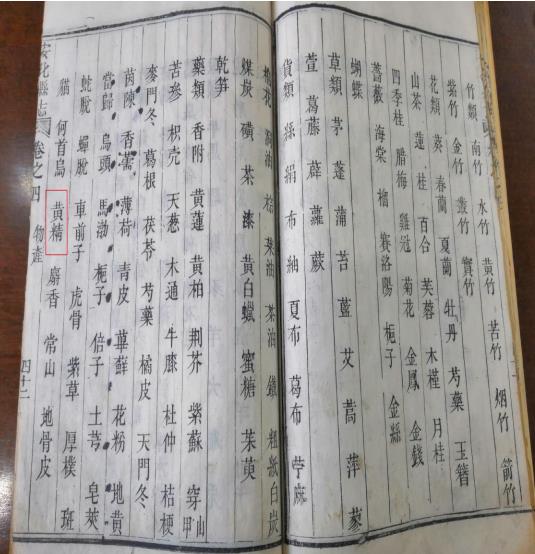 竹類 南竹 水竹 黄竹 苦竹 烟竹 箭竹
紫竹 金竹 叢竹 實竹
花類 葵 春蘭 夏蘭 牡丹 芍藥 玉簪
山茶 蓮 桂 百合 芙蓉 木槿 月桂
四季桂 腊梅 雞冠 菊花 金鳳 金錢
薔薇 海棠 榴 賽洛陽 梔子 金絲
蝴蝶
草類 茅 蓬 蒲 苔 藍 艾 蒿 萍 蓼
萱 葛藤 薜蘿 蕨
貨類 絲 絹 布 紬 夏布 葛布 苧麻
桐油 棕 菜油 茶油 鐵 粗紙 白炭
煤炭 磺 茶 漆 黄白蠟 蜜糖 茱萸
乾笋
藥類 香附 黄蓮 黄柏 荆芥 紫蘇 穿山甲
苦參 枳壳 天葱 木通 牛膝 杜仲 桔梗
麥門冬 葛根 茯苓 芍藥 橘皮 天門冬
茵陳 香薷 薄荷 青皮 萆薢 花粉 地黄
當歸 烏頭 馬渤 梔子 倍子 土芎 皂莢
蛇脫 蟬脫 車前子 虎骨 紫草 厚樸 斑
貓 何首烏 黄精 麝香 常山 地骨皮
安化縣志 卷之四 物產 四十二